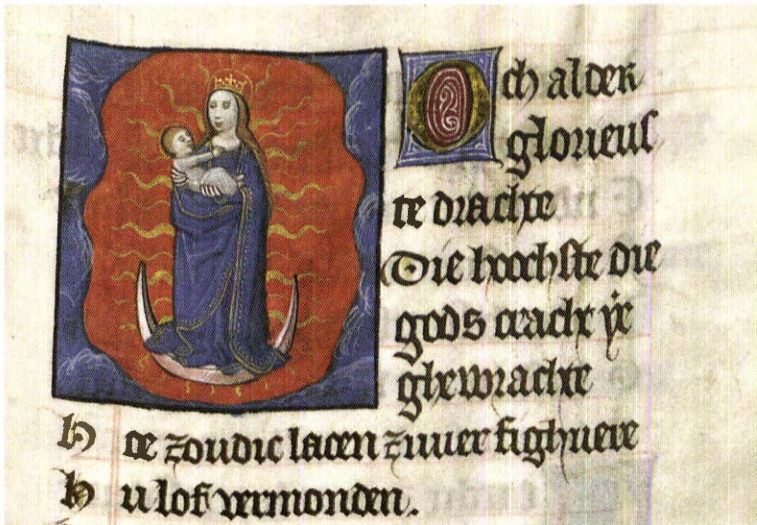 Och alder
glorieus
te drachte
Die hoochste die
gods cracht ye
ghewrachte
h oe zoudic laten zuuer fighuere
h u lof vermonden.